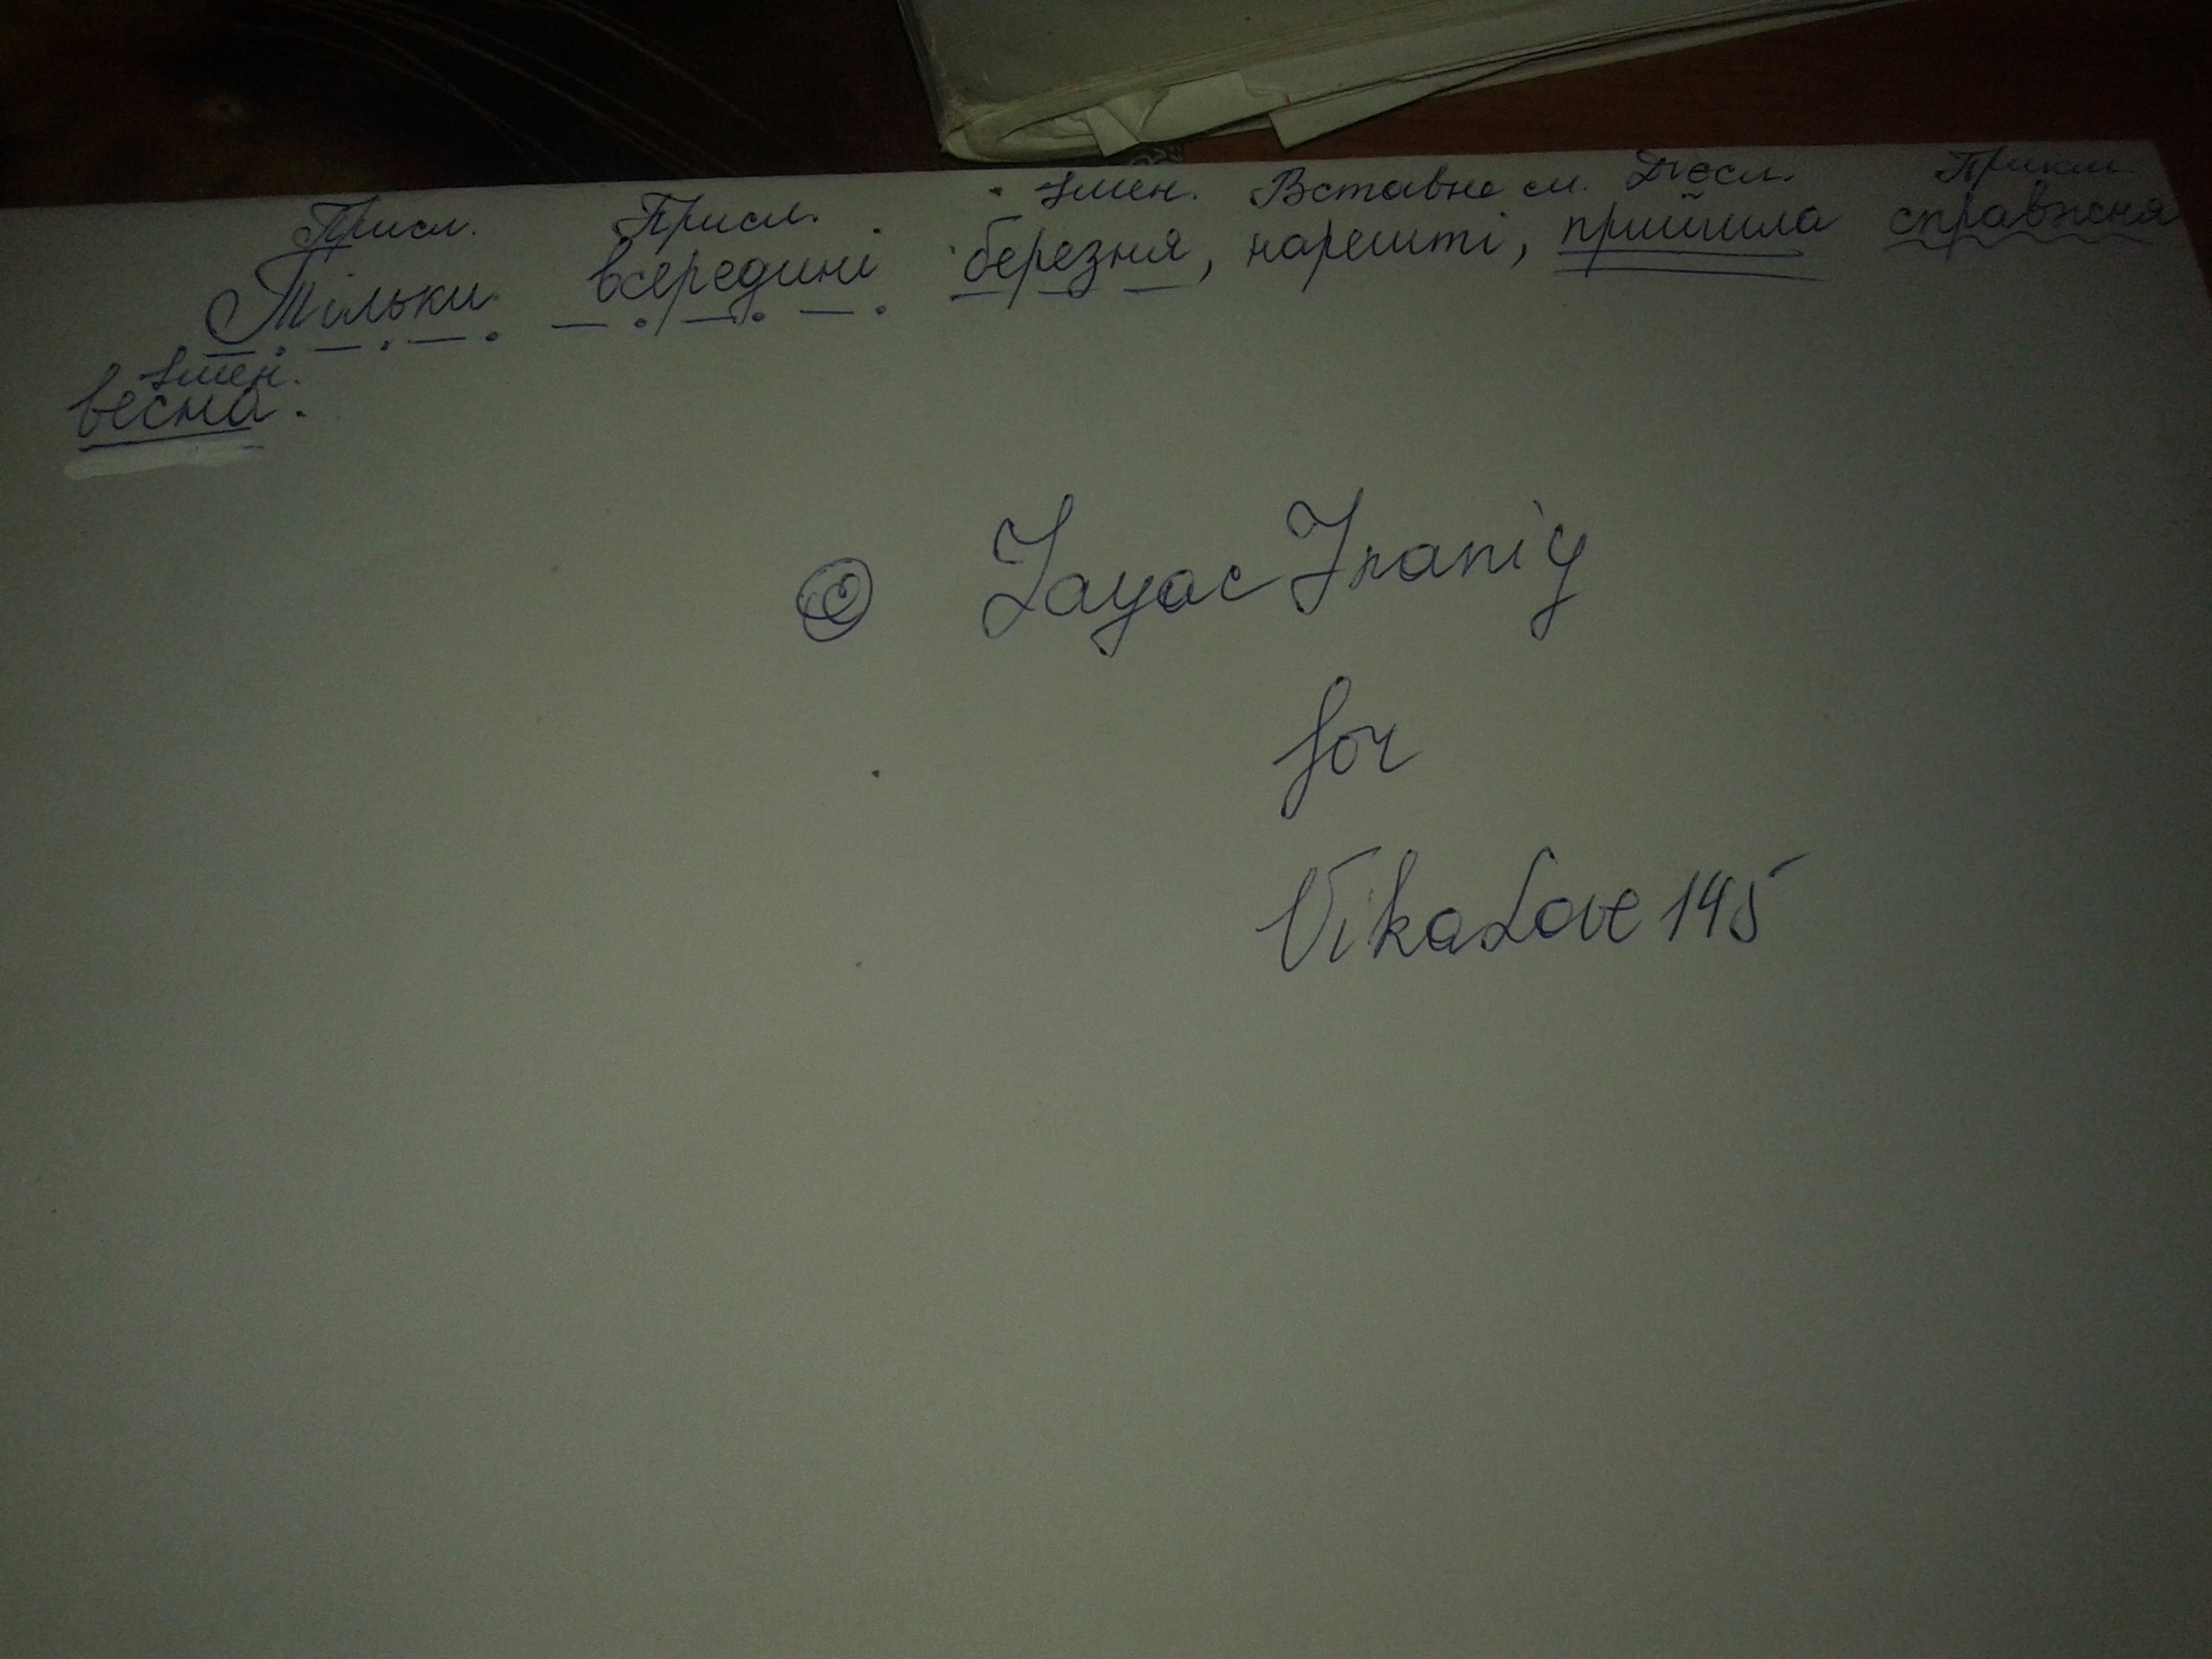 Присл. Присл. Імен. Вставне сл. Дієсл. Прикм.
Тільки всередині березня, нарешті, прийшла справжня
Імен.
весна.
© ZayacIraniy
for
VikaLove145